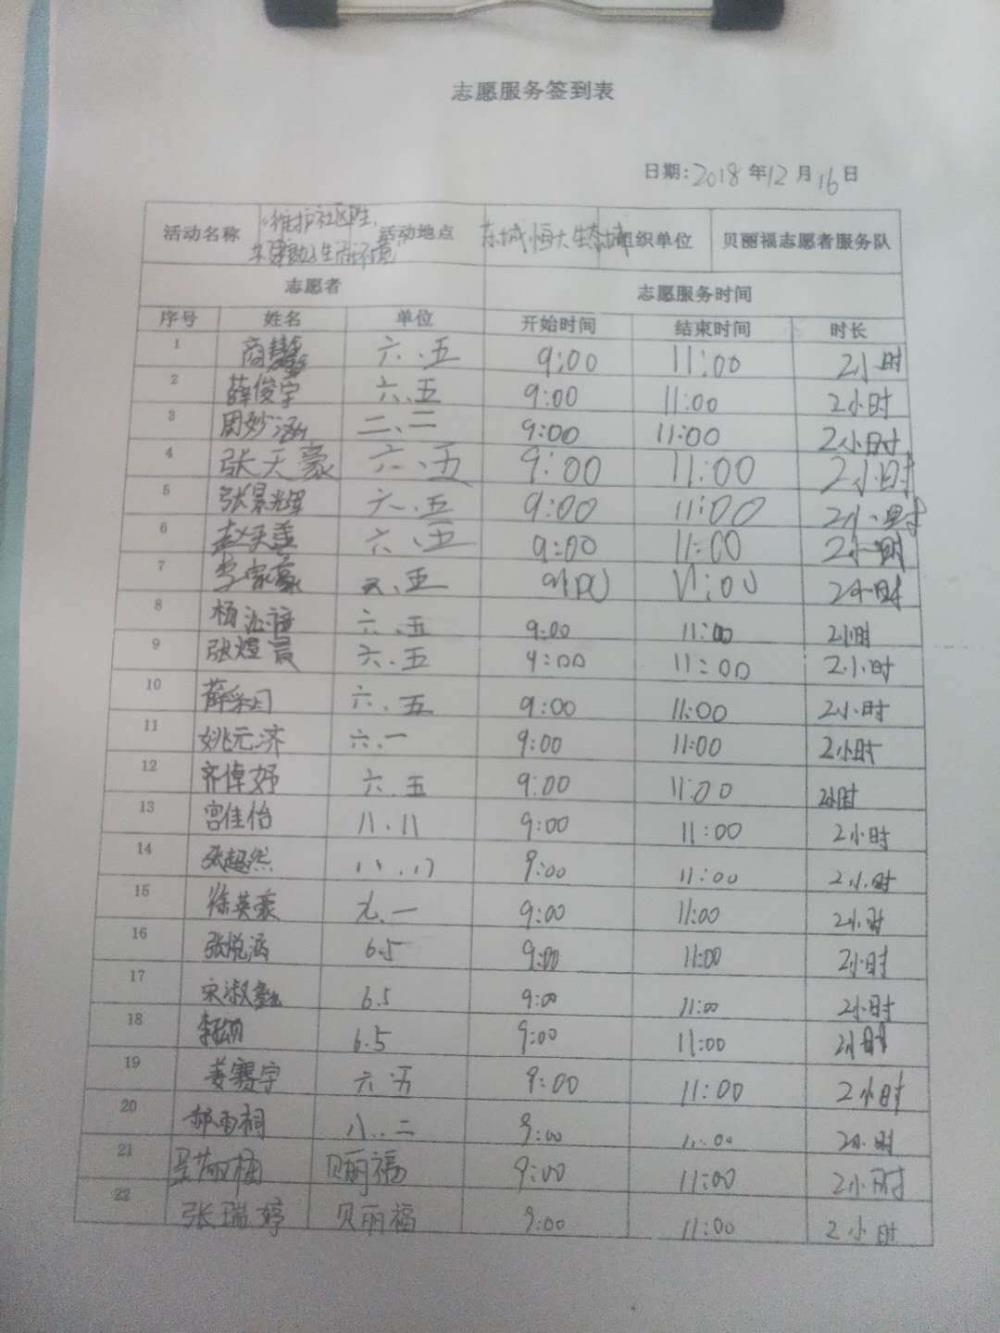 志愿服务签到表
日期:2018年12月16日
活动名称 维护社区卫生, 生活环境 活动地点 东城恒大生态城 组织单位 贝丽福志愿者服务队
志愿者 志愿服务时间
序号 姓名 单位 开始时间 结束时间 时长
1 商 六、五 9:00 11:00 2小时
2 薛俊宇 六、五 9:00 11:00 2小时
3 周妙涵 二、二 9:00 11:00 2小时
4 张天豪 六、五 9:00 11:00 2小时
5 张景辉 六、五 9:00 11:00 2小时
6 赵天 六、五 9:00 11:00 2小时
7 李家豪 五、五 9:00 11:00 2小时
8 杨 六、五 9:00 11:00 2小时
9 张煜晨 六、五 9:00 11:00 2小时
10 薛 六、五 9:00 11:00 2小时
11 姚元济 六、一 9:00 11:00 2小时
12 齐倬妤 六、五 9:00 11:00 2小时
13 宫佳怡 八.八 9:00 11:00 2小时
14 张超然 八.八 9:00 11:00 2小时
15 徐英豪 九、一 9:00 11:00 2小时
16 张悦涵 6.5 9:00 11:00 2小时
17 宋淑 6.5 9:00 11:00 2小时
18 6.5 9:00 11:00 2小时
19 姜赛宇 六.五 9:00 11:00 2小时
20 郝雨桐 八..二 9:00 11:00 2小时
21 贝丽福 9:00 11:00 2小时
22 张瑞婷 贝丽福 9:00 11:00 2小时